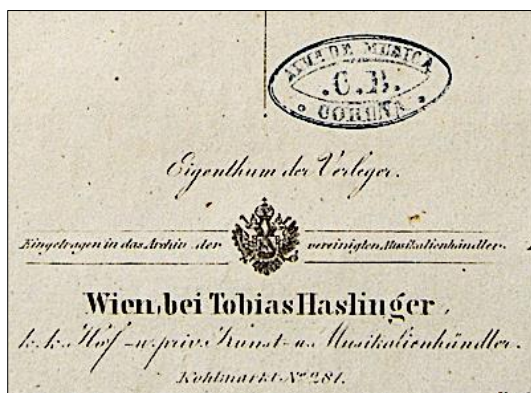 ALMA DE MUSICA
.C.B.
CORUÑA
Eigenthum der Verleger.
Eingetragen in das Archiv der vereinigten Musikalienhändler.
Wien, bei Tobias Haslinger,
k. k. Hof- u. priv. Kunst- u. Musikalienhändler.
Kohlmarkt No 281.